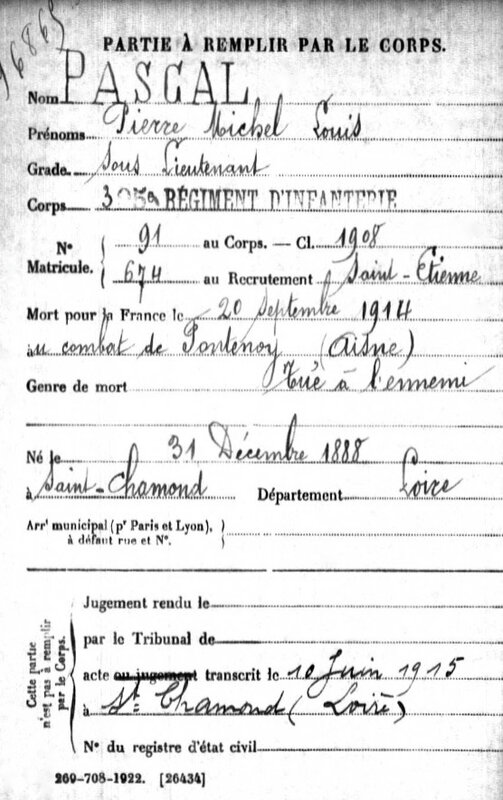 PARTIE À REMPLIR PAR LE CORPS.
Nom PASCAL
Prénoms Pierre Michel Louis
Grade Sous Lieutenant
Corps RÉGIMENT D'INFANTERIE
N° Matricule. { 91 au Corps. — Cl. 1908
674 au Recrutement Saint-Etienne
Mort pour la France le 20 Septembre 1914
au combat de Fontenoy (Aisne)
Genre de mort Tué à l'ennemi
Né le 31 Décembre 1888
à Saint-Chamond Département Loire
Arrt municipal (pr Paris et Lyon), à défaut rue et N°. }
Cette partie n'est pas à remplir par le Corps.
Jugement rendu le
par le Tribunal de
acte ou jugement transcrit le 10 Juin 1915
à St Chamond (Loire)
N° du registre d'état civil
269-708-1922. [26434]